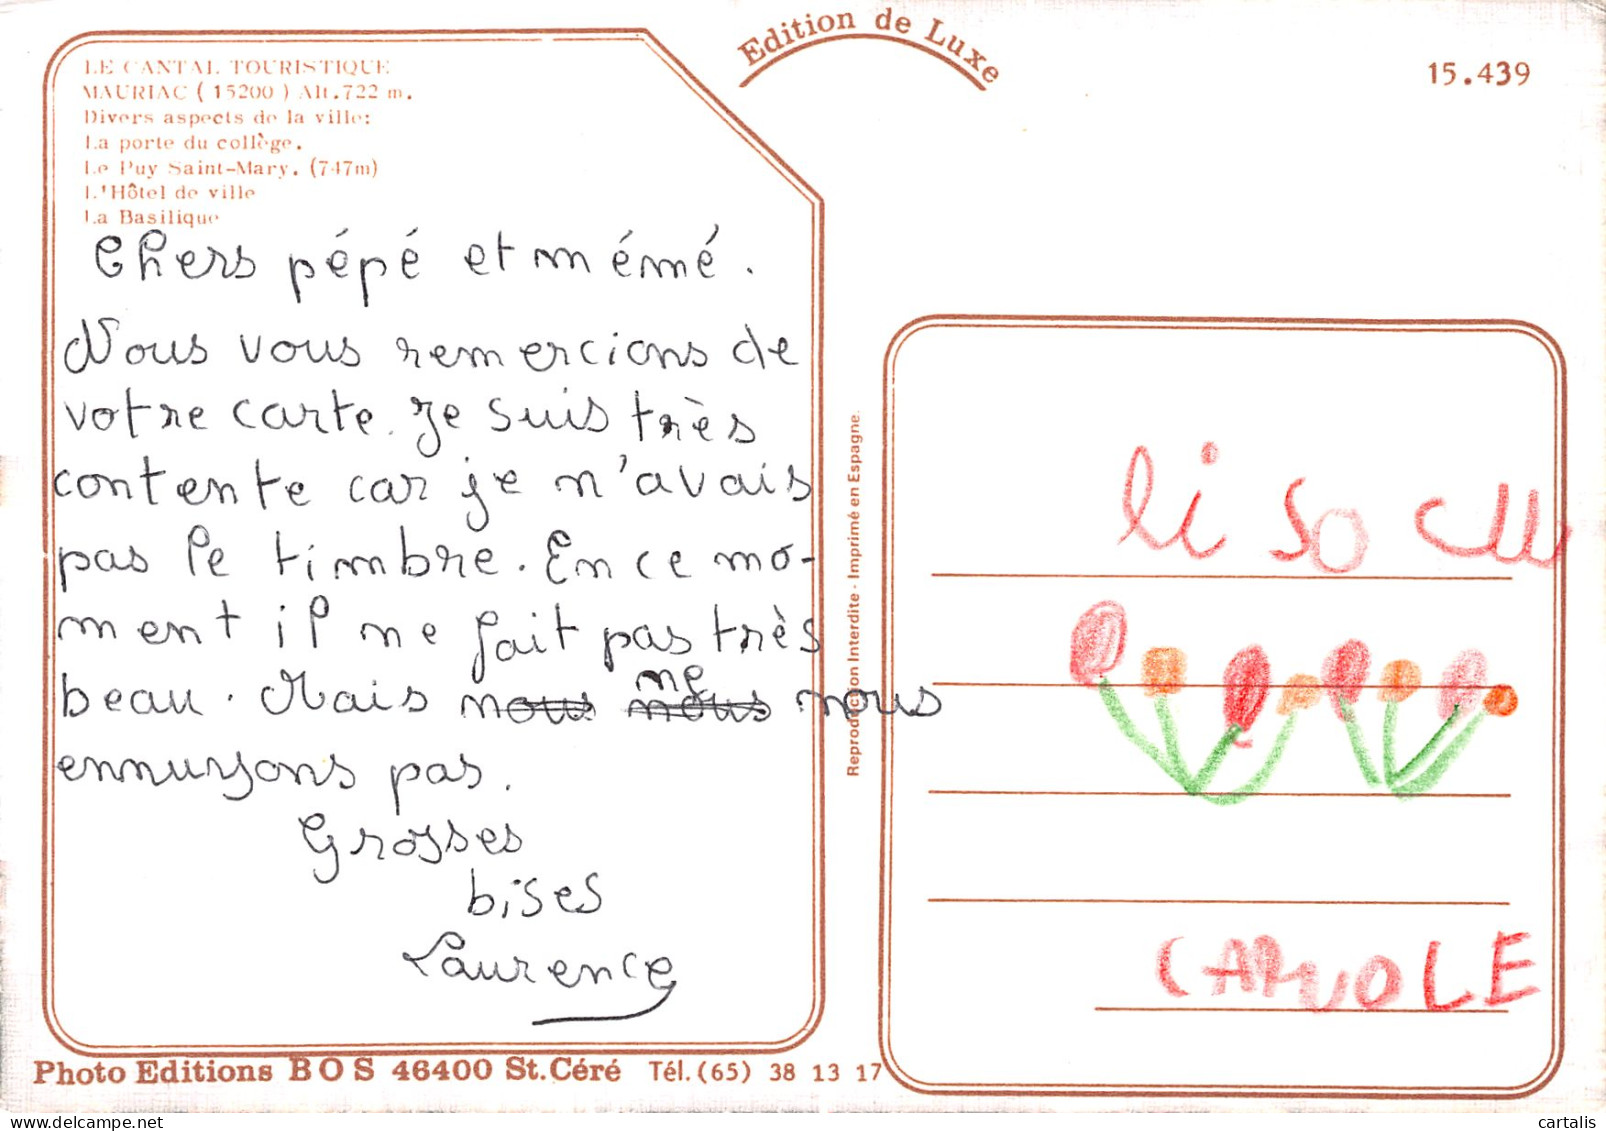 Edition de Luxe
15.439
LE CANTAL TOURISTIQUE
MAURIAC ( 15200 ) Alt.722 m.
Divers aspects de la ville:
La porte du collège.
Le Puy Saint-Mary. (747m)
L'Hôtel de ville
La Basilique
Chers pépé et mémé.
Nous vous remercions de
votre carte. Je suis très
contente car je n'avais
pas le timbre. En ce mo-
ment il ne fait pas très
beau. Mais nous ne nous nous
ennuyons pas.
Grosses
bises
Laurence
Reproduction Interdite - Imprimé en Espagne.
li so
CAROLE
Photo Editions BOS 46400 St.Céré Tél.(65) 38 13 17
cartalis